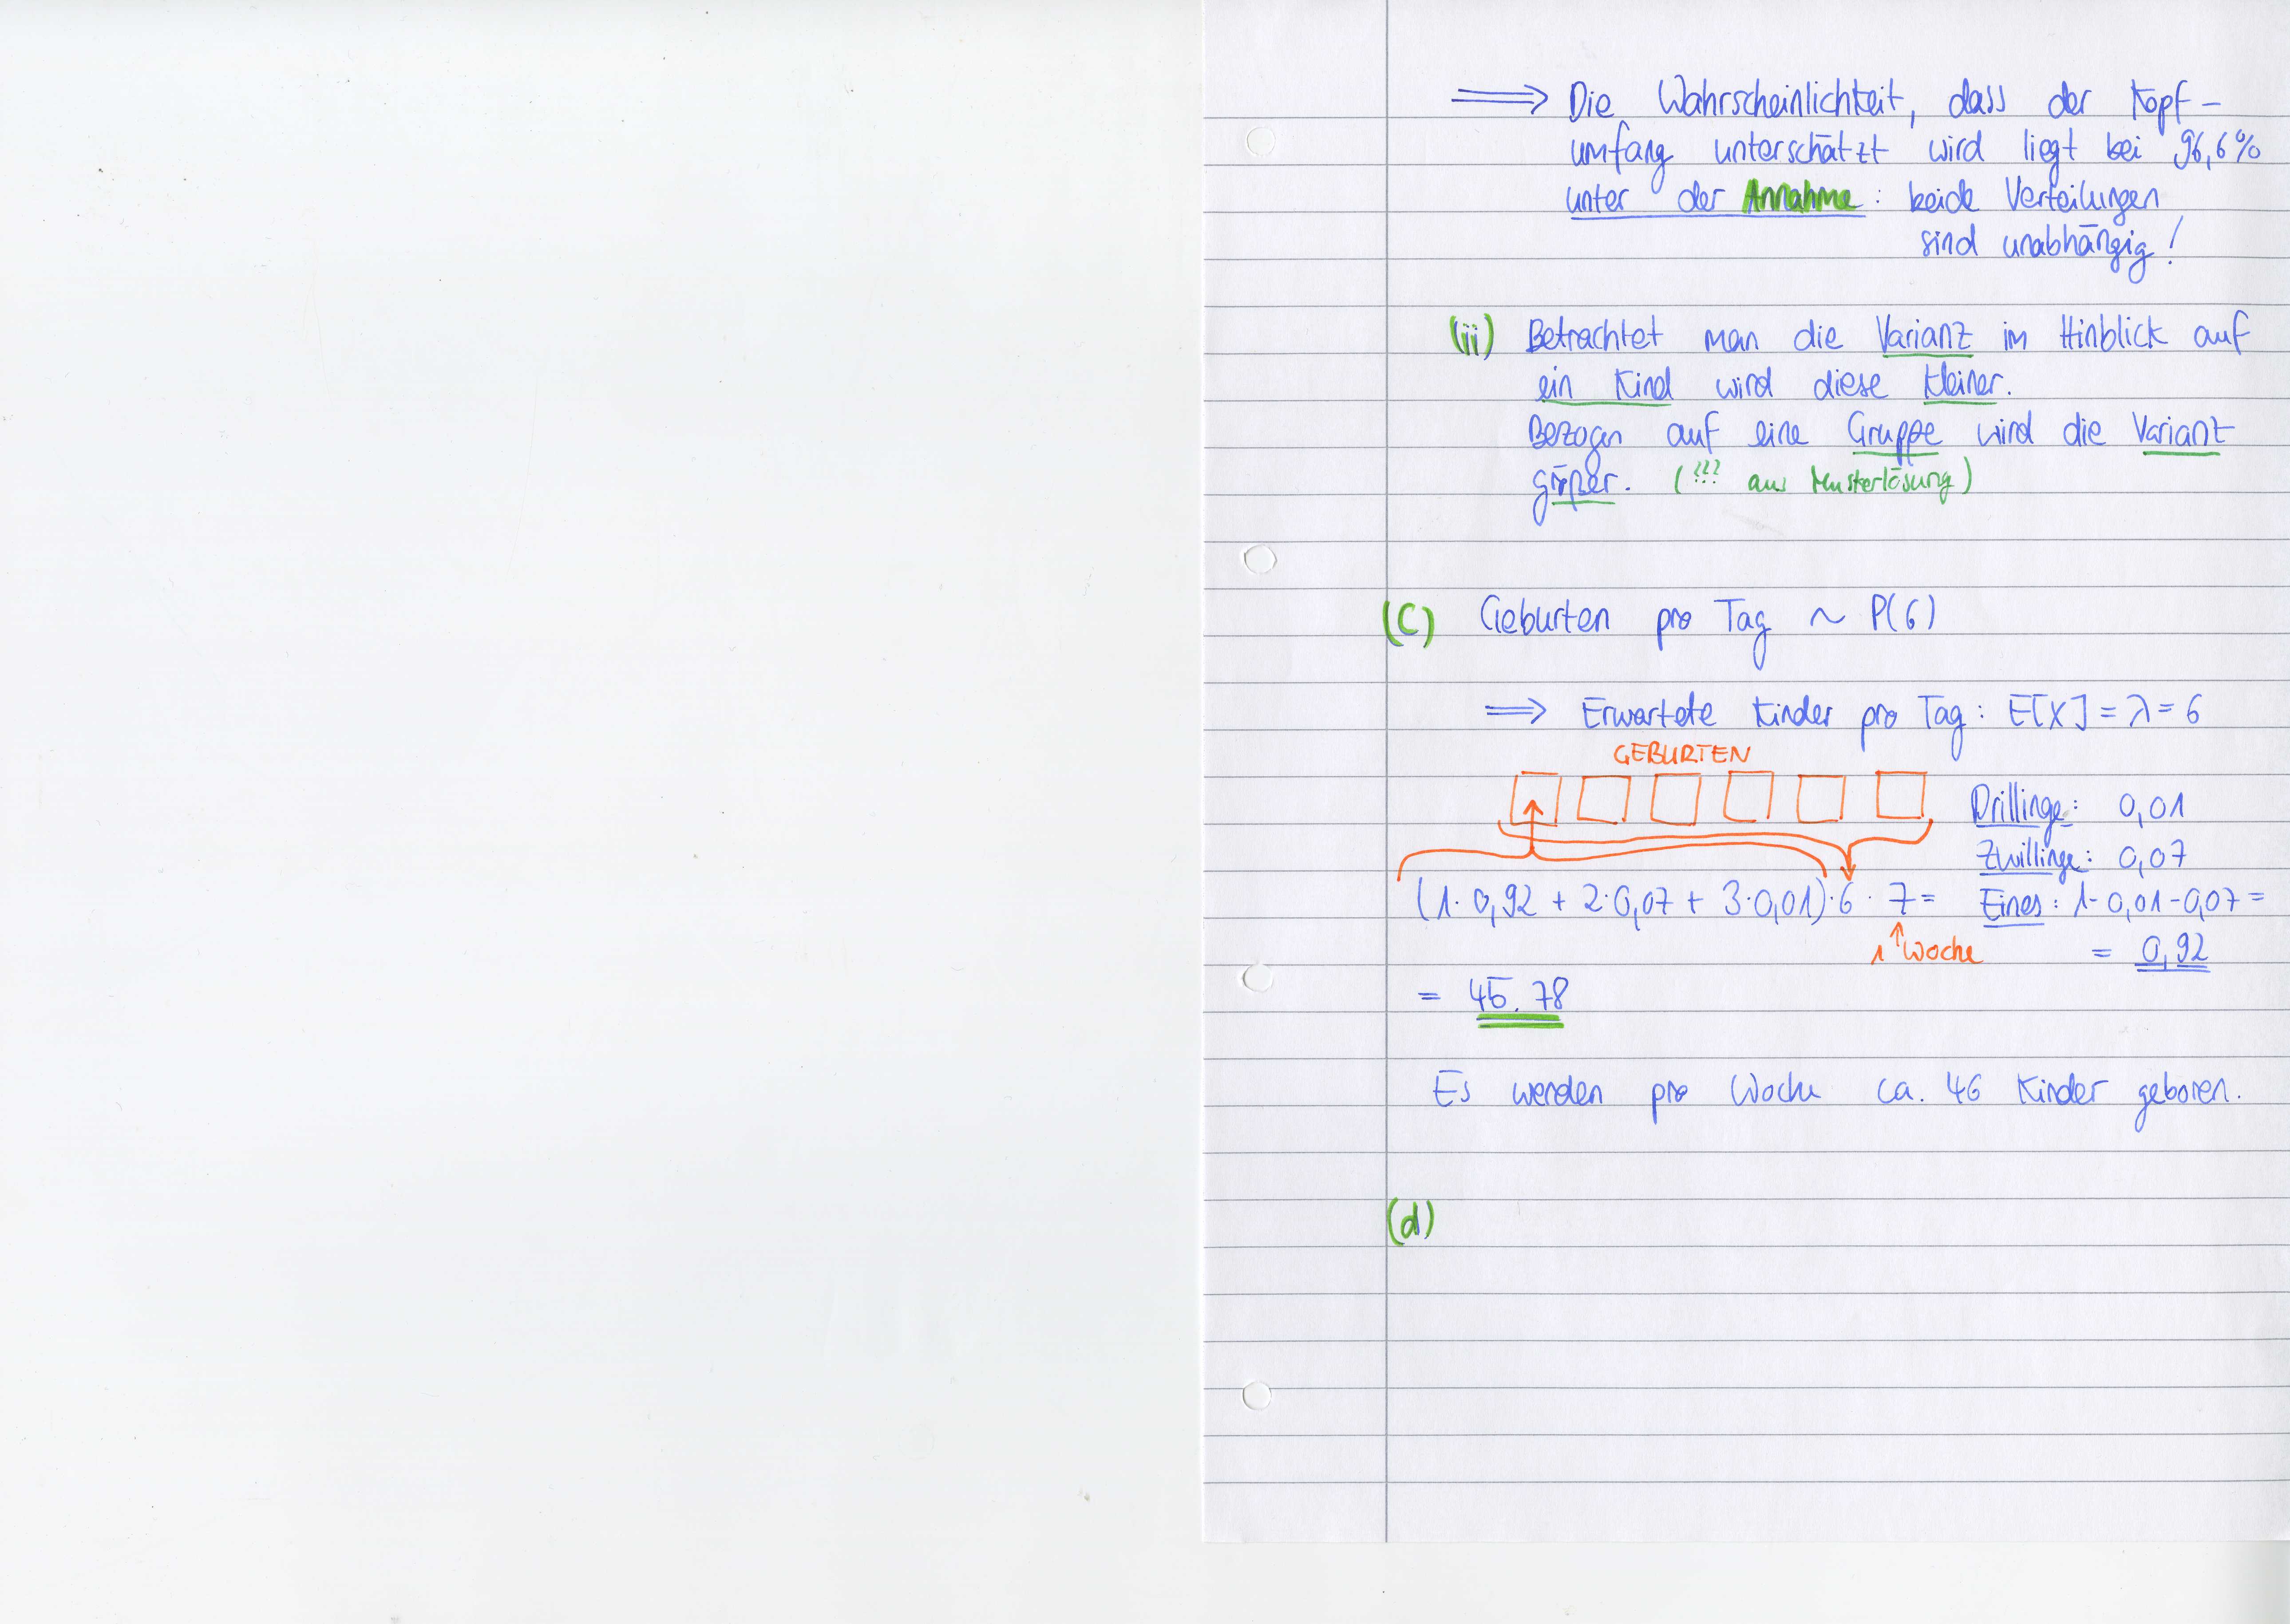 ⟹ Die Wahrscheinlichkeit, dass der Kopf-
umfang unterschätzt wird liegt bei 96,6%
unter der Annahme: beide Verteilungen
sind unabhängig!
(ii) Betrachtet man die Varianz im Hinblick auf
ein Kind wird diese kleiner.
Bezogen auf eine Gruppe wird die Varianz
größer. (??? aus Musterlösung)
(C) Geburten pro Tag ~ P(6)
⟹ Erwartete Kinder pro Tag: E[X] = λ = 6
GEBURTEN
Drillinge: 0,01
Zwillinge: 0,07
(1· 0,92 + 2·0,07 + 3·0,01)·6 · 7 =
Eines: 1- 0,01 - 0,07 =
1 Woche
= 0,92
= 45.78
Es werden pro Woche ca. 46 Kinder geboren.
(d)